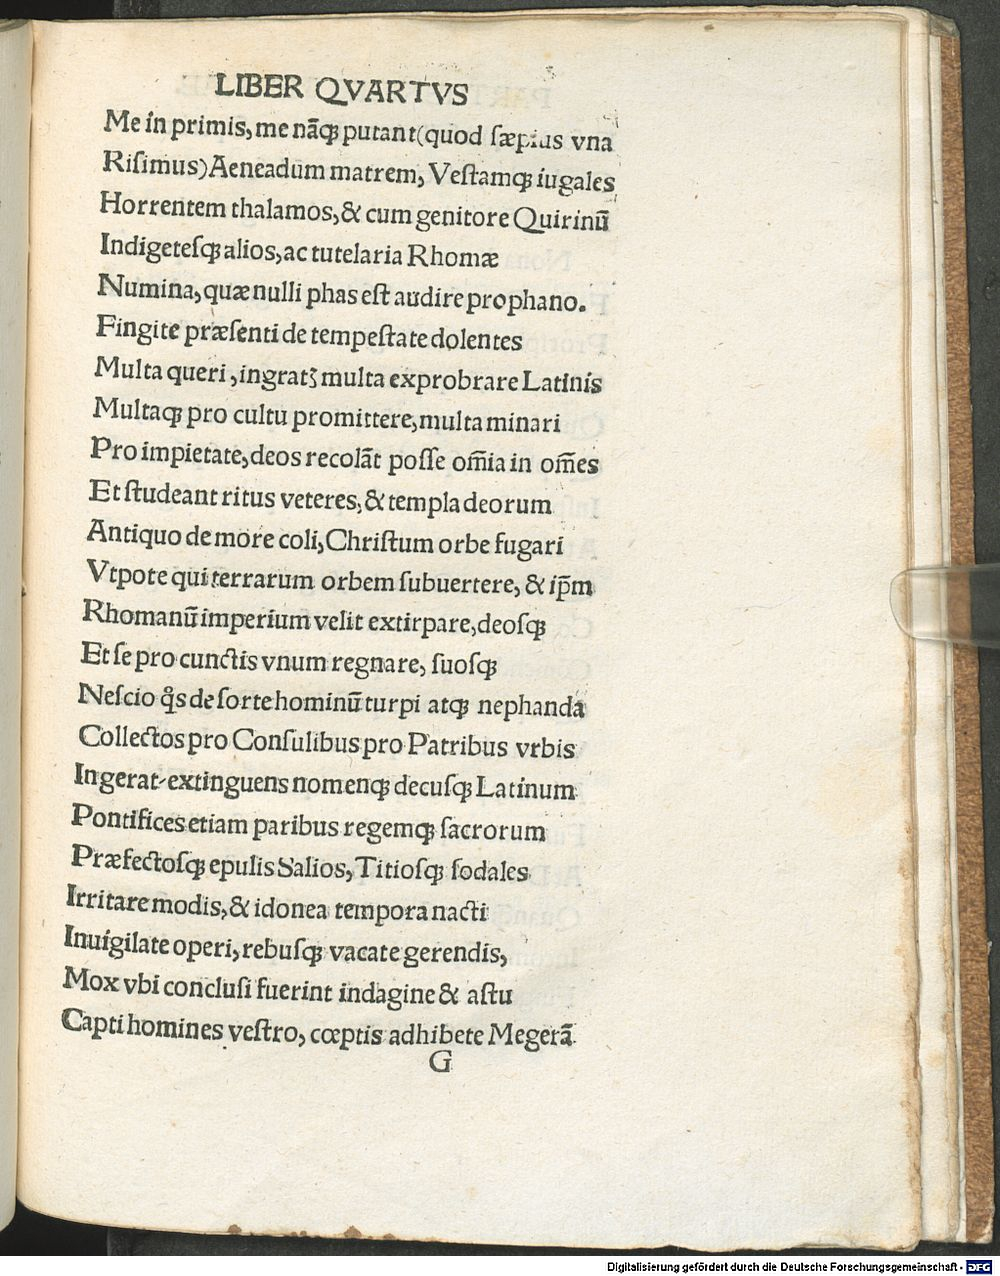 LIBER QVARTVS
Me in primis, me nãqꝫ putant(quod sæpius vna
Risimus)Aeneadum matrem, Vestamqꝫ iugales
Horrentem thalamos, & cum genitore Quirinũ
Indigetesqꝫ alios, ac tutelaria Rhomæ
Numina, quæ nulli phas est audire prophano.
Fingite præsenti de tempestate dolentes
Multa queri, ingratꝫ multa exprobrare Latinis
Multaqꝫ pro cultu promittere, multa minari
Pro impietate, deos recolãt posse om̃ia in om̃es
Et studeant ritus veteres, & templa deorum
Antiquo de more coli, Christum orbe fugari
Vtpote qui terrarum orbem subuertere, & ip̃m
Rhomanũ imperium velit extirpare, deosqꝫ
Et se pro cunctis vnum regnare, suosqꝫ
Nescio q̃s de sorte hominũ turpi atqꝫ nephanda
Collectos pro Consulibus pro Patribus vrbis
Ingerat-extinguens nomenqꝫ decusqꝫ Latinum
Pontifices etiam paribus regemqꝫ sacrorum
Præfectosqꝫ epulis Salios, Titiosqꝫ sodales
Irritare modis, & idonea tempora nacti
Inuigilate operi, rebusqꝫ vacate gerendis,
Mox vbi conclusi fuerint indagine & astu
Capti homines vestro, cœptis adhibete Megerã
G
Digitalisierung gefördert durch die Deutsche Forschungsgemeinschaft - DFG